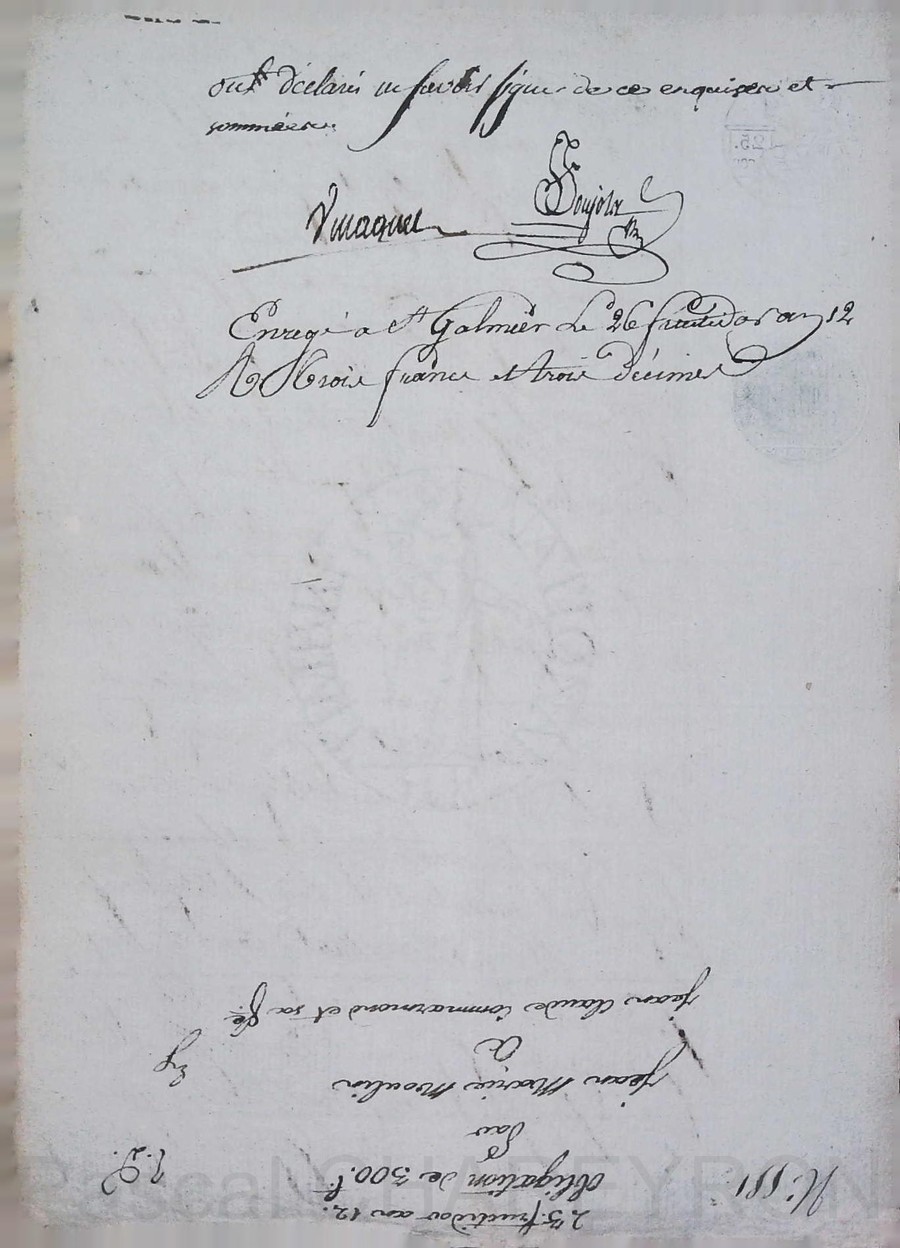 ont déclarés ne savoir signer de ce enquiser et
sommées
Vmaguet
Boujolx
Enregé a St Galmier Le 26 fructidor an 12
R trois francs et trois décimes
25.
23 fructidor an 12.
N.º 551.
obligation de 300 f.
Par
Jean Marie Moulin
a
Jean Claude Commarmond et sa fe.
Pascal CHAPEYRON